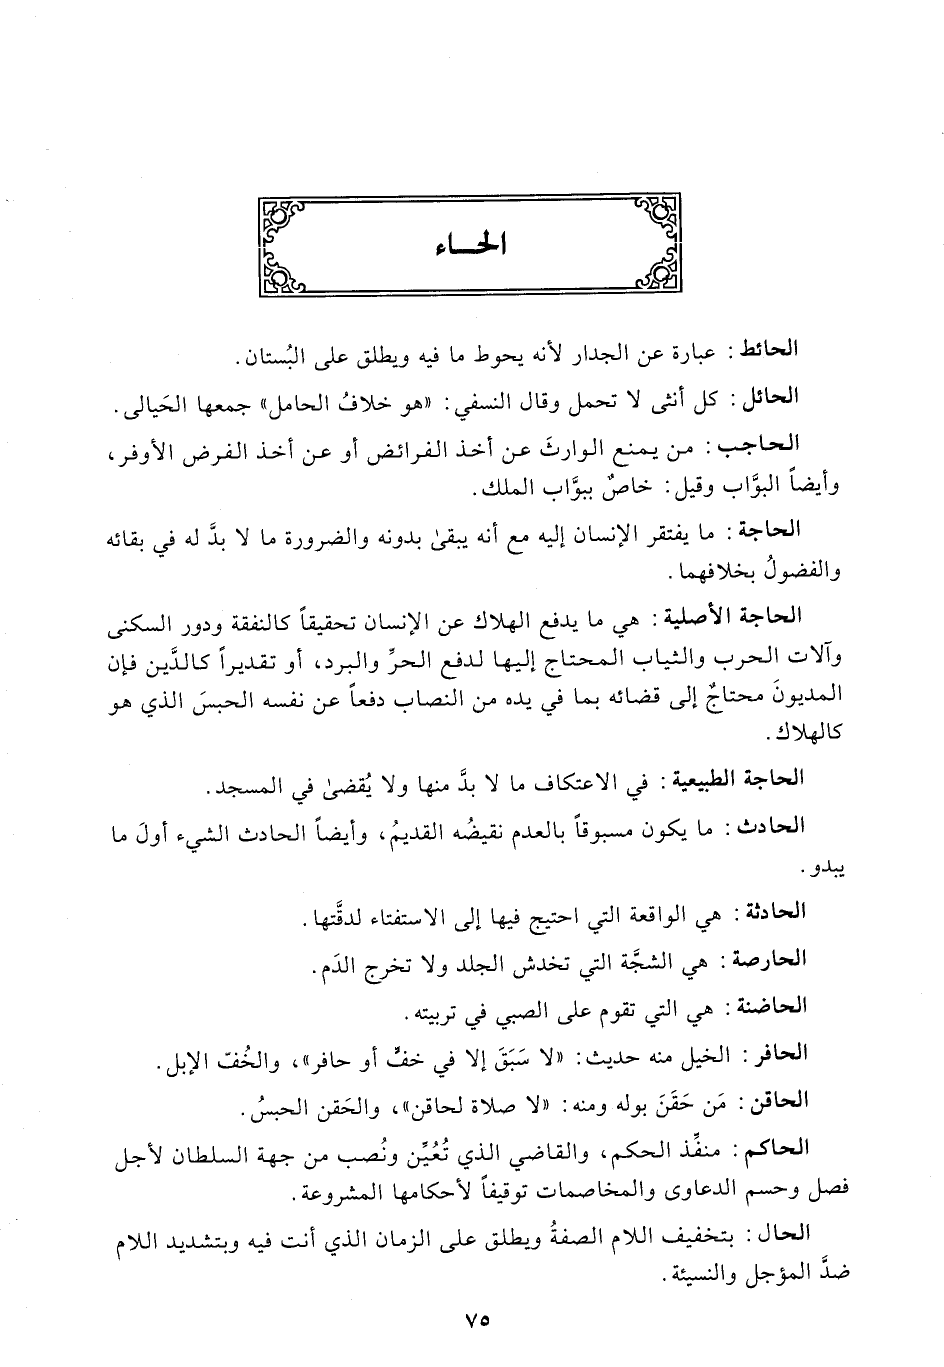 الحاء
الحائط: عبارة عن الجدار لأنه يحوط ما فيه ويطلق على البُستان.
الحائل: كل أنثى لا تحمل وقال النسفي: «هو خلافُ الحامل» جمعها الحَيالى.
الحاجب: من يمنع الوارثَ عن أخذ الفرائض أو عن أخذ الفرض الأوفر،
وأيضاً البوَّاب وقيل: خاصٌ ببوَّاب الملك.
الحاجة: ما يفتقر الإنسان إليه مع أنه يبقىٰ بدونه والضرورة ما لا بدَّ له في بقائه
والفضولُ بخلافهما.
الحاجة الأصلية: هي ما يدفع الهلاك عن الإنسان تحقيقاً كالنفقة ودور السكنى
وآلات الحرب والثياب المحتاج إليها لدفع الحرِّ والبرد، أو تقديراً كالدَّين فإن
المديونَ محتاجٌ إلى قضائه بما في يده من النصاب دفعاً عن نفسه الحبسَ الذي هو
كالهلاك.
الحاجة الطبيعية: في الاعتكاف ما لا بدَّ منها ولا يُقضىٰ في المسجد.
الحادث: ما يكون مسبوقاً بالعدم نقيضُه القديمُ، وأيضاً الحادث الشيء أولَ ما
يبدو.
الحادثة: هي الواقعة التي احتيج فيها إلى الاستفتاء لدقَّتها.
الحارصة: هي الشجَّة التي تخدش الجلد ولا تخرج الدَم.
الحاضنة: هي التي تقوم على الصبي في تربيته.
الحافر: الخيل منه حديث: «لا سَبَقَ إلا في خفٍّ أو حافر»، والخُفّ الإبل.
الحاقن: مَن حَقَنَ بوله ومنه: «لا صلاة لحاقن»، والحَقن الحبسُ.
الحاكم: منفِّذ الحكم، والقاضي الذي تُعُيِّن ونُصب من جهة السلطان لأجل
فصل وحسم الدعاوى والمخاصمات توقيفاً لأحكامها المشروعة.
الحال: بتخفيف اللام الصفةُ ويطلق على الزمان الذي أنت فيه وبتشديد اللام
ضدَّ المؤجل والنسيئة.
٧٥